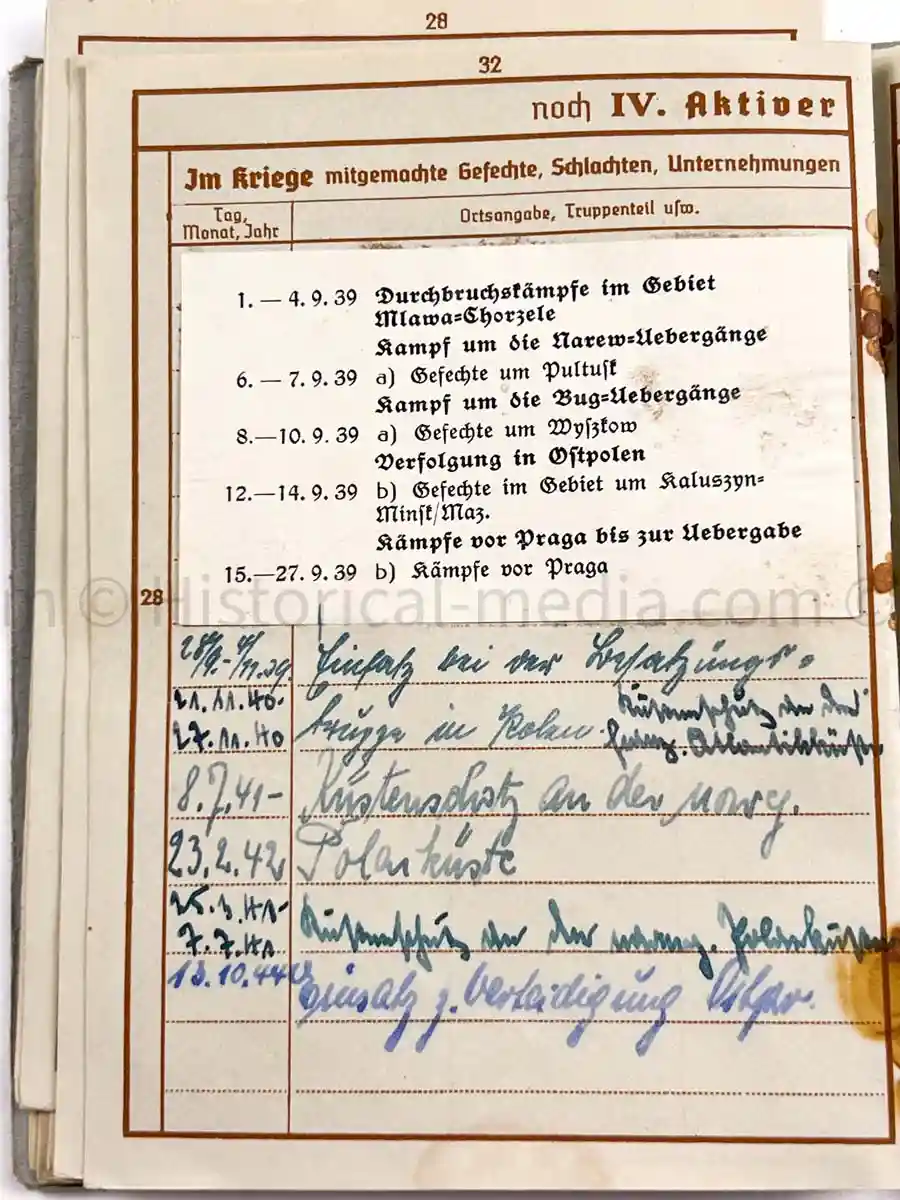 28
32
noch IV. Aktiver
Im Kriege mitgemachte Gefechte, Schlachten, Unternehmungen
Tag, Monat, Jahr
Ortsangabe, Truppenteil usw.
1. — 4. 9. 39 Durchbruchskämpfe im Gebiet
Mlawa=Chorzele
Kampf um die Narew=Uebergänge
6. — 7. 9. 39 a) Gefechte um Pultusk
Kampf um die Bug=Uebergänge
8.—10. 9. 39 a) Gefechte um Wyszkow
Verfolgung in Ostpolen
12.—14. 9. 39 b) Gefechte im Gebiet um Kaluszyn=
Minsk/Maz.
Kämpfe vor Praga bis zur Uebergabe
15.—27. 9. 39 b) Kämpfe vor Praga
28
© Historical-media.com ©
Einsatz bei der Besatzungs=
21.11.40- Küstenschutz an der
truppe in Polen.
27.11.40 franz. Atlantikküste
8.7.41- Küstenschutz an der norw.
23.2.42 Polarküste
25.3.41-
7.7.41 Küstenschutz an der norweg. Polarküste
13.10.44 Einsatz z. Verteidigung Ostpr.